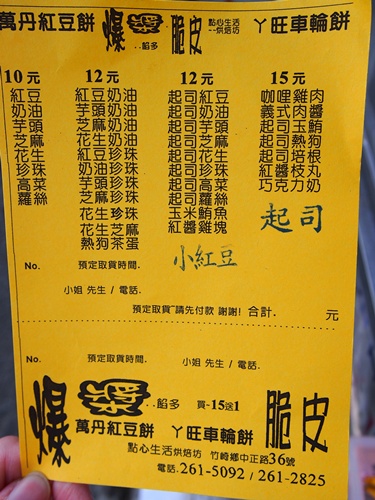 萬丹紅豆餅 爆餡 ..餡多 脆皮 點心生活 --烘焙坊 ㄚ旺車輪餅
10元
紅豆
奶油
芋頭
芝麻
花生
珍珠
高菜
蘿絲
12元
紅豆奶油
芋頭奶油
芝麻奶油
花生奶油
紅豆珍珠
奶油珍珠
芋頭珍珠
芝麻珍珠
花生珍珠
花生芝麻
熱狗茶蛋
12元
起司紅豆
起司奶油
起司芋頭
起司芝麻
起司花生
起司珍珠
起司高菜
起司蘿絲
玉米鮪魚
紅醬雞塊
小紅豆
15元
咖哩雞肉
義式肉醬
起司玉鮪
起司熱狗
起司培根
巧克力奶
起司
No. 預定取貨時間.
小姐 先生 / 電話.
預定取貨~請先付款 謝謝! 合計. 元
No. 預定取貨時間. 小姐 先生 / 電話.
爆餡 ..餡多 買-15送1 脆皮
萬丹紅豆餅 ㄚ旺車輪餅
點心生活烘焙坊 竹崎鄉中正路36號
電話.261-5092 / 261-2825